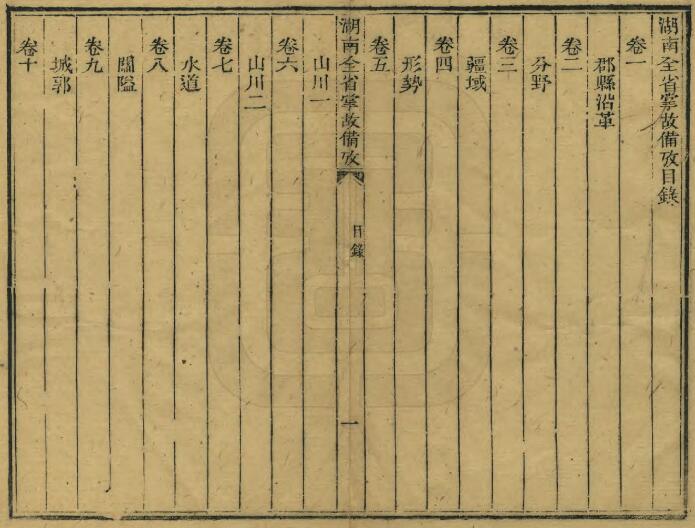 湖南全省掌故備攷目錄
卷一
郡縣沿革
卷二
分野
卷三
疆域
卷四
形勢
卷五
湖南全省掌故備攷
目錄
一
山川一
卷六
山川二
卷七
水道
卷八
關隘
卷九
城郭
卷十